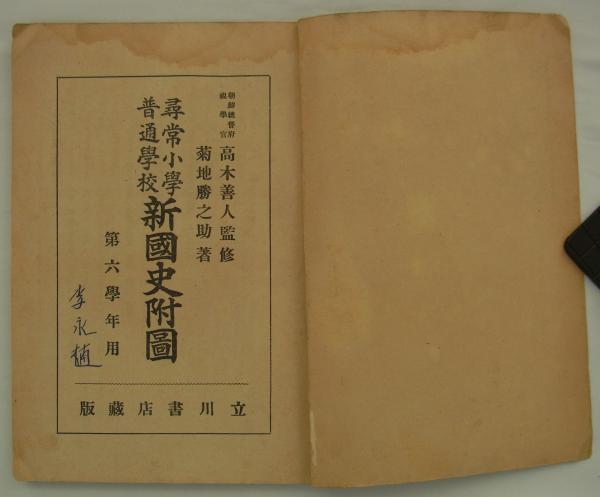 朝鮮總督府
視學官
高木善人監修
菊地勝之助著
尋常小學
普通學校
新國史附圖
第六學年用
李永植
立川書店藏版